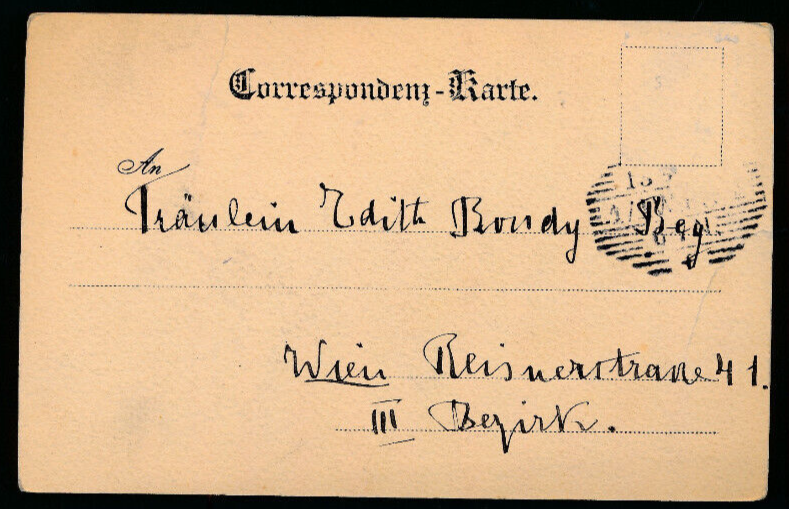 Correspondenz-Karte.
An
Fräulein Edith Bondy
Wien Reisnerstrasse 41.
III Bezirk.